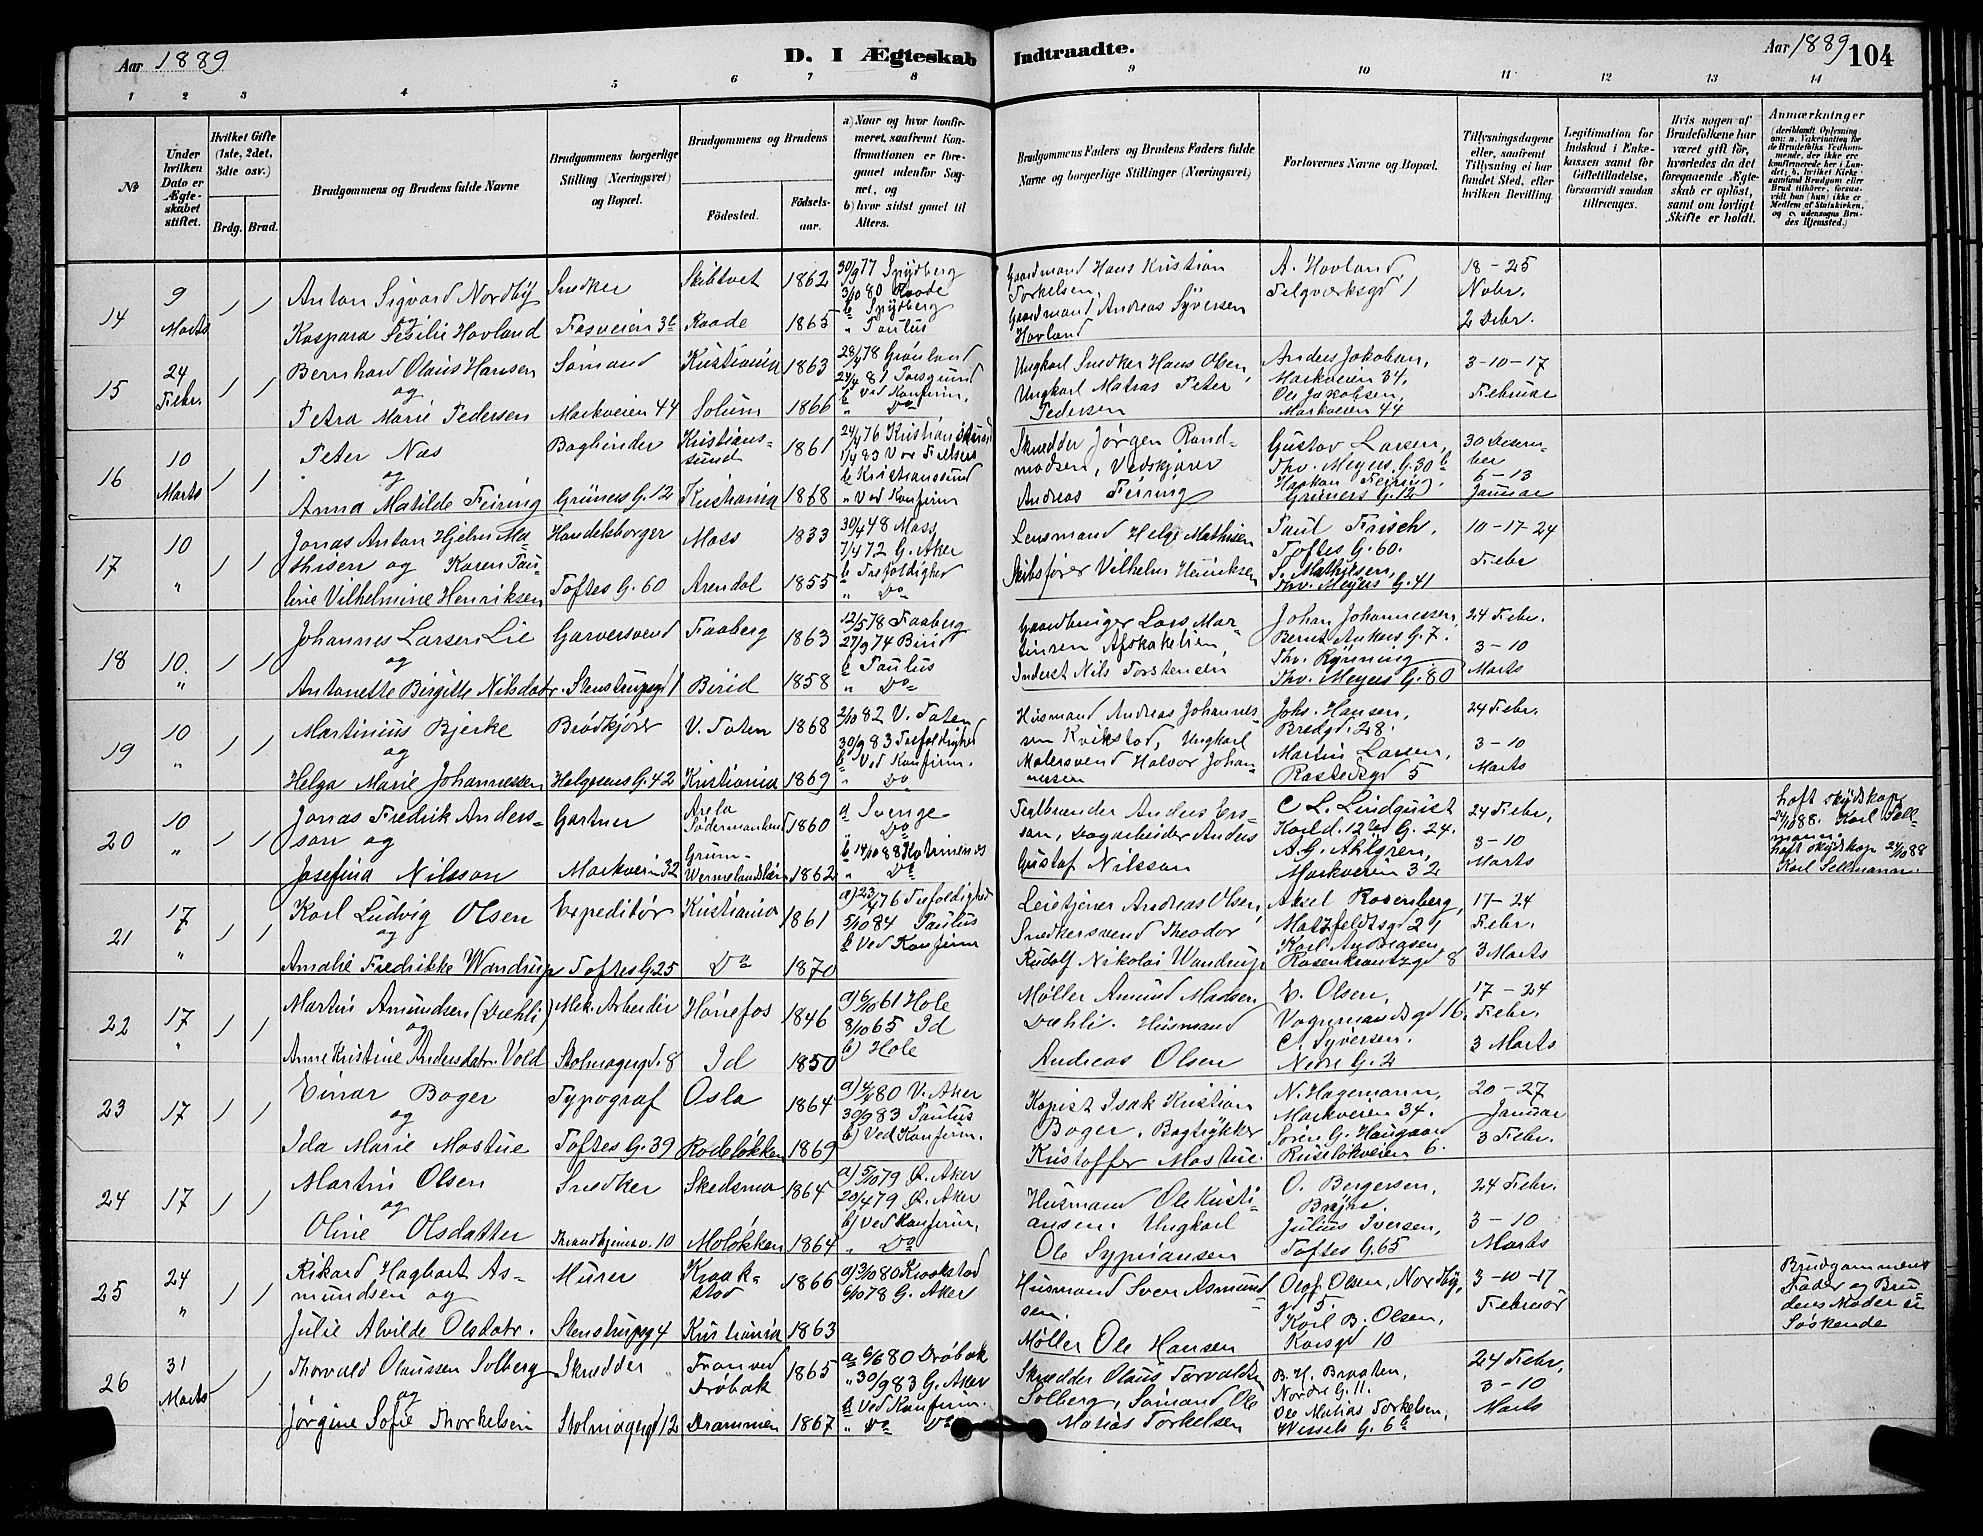 Aar 1889
D. I Ægteskab Indtraadte.
Aar 1889 104
1 2 3 4 5 6 7 8 9 10 11 12 13 14
No
Under hvilken Dato er Ægteskabet stiftet.
Hvilket Gifte (1ste, 2det, 3die osv.)
Brdg. Brud.
Brudgommens og Brudens fulde Navne
Brudgommens borgerlige Stilling (Næringsvei) og Bopæl.
Brudgommens og Brudens
Fødested.
Fødselsaar.
a) Naar og hvor konfirmeret, saafremt Konfirmationen er foregaaet udenfor Sognet, og
b) hvor sidst gaaet til Alters.
Brudgommens Faders og Brudens Faders fulde Navne og borgerlige Stillinger (Næringsvei)
Forlovernes Navne og Bopæl.
Tillysningsdagene eller, saafremt Tillysning ei har fundet Sted, efter hvilken Bevilling.
Legitimation for Indskud i Enkekassen samt for Giftetilladelse, forsaavidt saadan tiltrænges.
Hvis nogen af Brudefolkene har været gift, hvorledes da det foregaaende Ægteskab er opløst, samt om lovligt Skifte er holdt.
Anmærkninger (deriblandt Oplysning om: a. Vaccination for de Brudefolks Vedkommende, der ikke ere konfirmerede her i Landet; b. hvilket Kirkesamfund Brudgom eller Brud tilhører, forsaavidt han (hun) ikke er Medlem af Statskirken, og c. udensogns Brudes Hjemsted.)
14
9 Marts
1 1
Anton Sigvard Nordby
og
Kaspara Cesilie Hovland
Snedker
Fosveien 3b
Skibtvet
Raade
1862
1865
30/9 77 Spydberg
3/10 80 Raade
b Spydberg
" Paulus
Gaardmand Hans Kristian
Torkelsen,
Gaardmand Andreas Syversen
Hovland
A. Hovland,
Telgværksgd 1
18 - 25
Novbr.
2 Decbr.
15
24 Febr.
1 1
Bernhard Olaus Hansen
og
Petra Marie Pedersen
Sømand
Markveien 44
Kristiania
Solum
1863
1866
28/4 78 Grønland
24/4 81 Porsgrund
b Ved Konfirm.
" Do
Ungkarl Snedker Hans Olsen,
Ungkarl Matros Peter
Pedersen
Anders Jakobsen,
Markveien 34.
Ole Jakobsen,
Markveien 44
3-10-17
Februar
16
10 Marts
1 1
Peter Næs
og
Anna Matilde Feiring
Bogbinder
Grüners G. 12
Kristianssund
Kristiania
1861
1868
24/4 76 Kristianssund
1/4 83 Vor Frelsers
b Kristianssund
" Ved Konfirm
Skrædder Jørgen Randmodsen, Vedskjører
Andreas Feiring
Gustav Larsen,
Thv. Meyers G. 30b
Haakon Feiring,
Grüners G. 12
30 Desember
6-13
Januar
17
10
"
1 1
Jonas Anton Hjelm Mathisen og Karen Pauline Vilhelmine Henriksen
Handelsborger
Toftes G. 60
Moss
Arendal
1833
1855
30/4 48 Moss
7/4 72 G. Aker
b Trefoldighed
" Do
Lensmand Helge Mathisen
Skibsfører Vilhelm Henriksen
Paul Frisch,
Toftes G. 60.
S. Mathisen,
Thv. Meyers G. 41
10-17-24
Febr
18
10.
"
1 1
Johannes Larsen Lie
og
Antonette Birgitte Nilsdatr.
Garversvend
Stenstrupsgd 1
Faaberg
Birid
1863
1858
12/5 78 Faaberg
27/9 74 Birid
b Paulus
" Do
Gaardbruger Lars Martinsen Afskakelien,
Inderst Nils Torstensen
Johan Johannessen,
Bernt Ankers G. 7.
Thv. Rynning
Thv. Meyers G. 80
24 Febr.
3-10
Marts
19
10
"
1 1
Martinius Bjerke
og
Helga Marie Johannessen
Brødkjører
Helgesens G. 42
V. Toten
Kristiania
1868
1869
2/10 82 V. Toten
30/9 83 Trefoldighed
b Ved Konfirm.
" Do
Husmand Andreas Johannessen Kvikstad, Ungkarl
Malersvend Halvor Johannesen
Johs. Hansen,
Bredgd. 28.
Martin Larsen,
Rostedsgd 5
24 Febr.
3-10
Marts
20
10
"
1 1
Jonas Fredrik Andersson og
Josefina Nilsson
Gartner
Markveien 32
Arela
Södermanland
Grum-
Wermelandslän
1860
1862
a Sverge
" Do
b 14/10 88
" Do
Teglbrænder Anders Ersson, Dagarbeider Anders
Gustaf Nilsson
C. L. Lindquist
Karl d. 12tes G. 24.
A. G. Ahlgren,
Markveien 32
24 Febr,
3-10
Marts
haft skydskop.
24/10 88. Karl Sellmann.
haft skydskop 24/10 88
Karl Sellmann.
21
17
"
1 1
Karl Ludvig Olsen
og
Amalie Fredrikke Wandrup
Expeditør
Toftes G. 25
Kristiania
Do
1861
1870
a) 23/4 76 Trefoldighed
5/10 84 Paulus
b Ved Konfirm
Leietjener Andreas Olsen,
Snedkersvend Theodor
Rudolf Nikolai Wandrup
Aksel Rosenberg,
Motzfeldtsgd 21
Karl Andersen,
Rosenkrantzgd 8
17-24
Febr.
3 Marts
22
17
"
1 1
Martin Amundsen (Dæhli)
og
Anne Kristine Andersdatr. Vold
Mek. Arbeider
Skolmagergd. 8
Hønefos
Id
1846
1850
a) 6/10 61 Hole
8/10 65 Id
b) Hole
Møller Amund Madsen
Dæhli. Husmand
Andreas Olsen
E. Olsen,
Vognmandsgd 16.
C. Syversen.
Nedre G. 2
17-24
Febr.
3 Marts
23
17
1 1
Einar Boger
og
Ida Marie Mostue
Typograf
Toftes G. 39
Oslo
Rodeløkken
1864
1869
a) 4/4 80 V. Aker
30/9 83 Paulus
b) Ved Konfirm.
Kopist Isak Kristian
Boger. Bogtrykker
Kristoffer Mostue.
N. Hagemann,
Markveien 34.
Sören G. Haugaard
Ruseløkveien 6.
20-27
Januar
3 Febr.
24
17
1 1
Martin Olsen
og
Oline Olsdatter
Snedker
Throndhjemsv. 10
Skedsmo
Moløkken
1864
1864
a) 5/10 79 Ø. Aker
20/4 79 Ø. Aker
b) Ved Konfirm,
" Do
Husmand Ole Kristiansen. Ungkarl
Ole Sypriansen
O. Bergersen,
Bryn.
Julius Iversen,
Toftes G. 65
24 Febr.
3-10
Marts
25
24
"
1 1
Rikard Hagbart Asmundsen og
Julie Alvilde Olsdatr.
Murer
Stenstrupsg 4
Kraakstad
Kristiania
1866
1863
a) 3/10 80 Kraakstad
6/10 78 G. Aker
Husmand Sven Asmundsen.
Møller Ole Hansen
Olof Olsen, Nordbygd 5.
Karl B. Olsen,
Korsgd 10
3-10-17
Februar
Brudgommens
Fader og Brudens Moder er
Søskende
26
31
Marts
1 1
Thorvald Olaussen Solberg
og
Jørgine Sofie Thorkelsen
Skrædder
Skolmagergd 12
Fron ved
Drøbak
Drammen
1865
1867
a 6/6 80 Drøbak
" 30/9 83 G. Aker
b Ved Konfirm.
" Do Do
Skrædder Olaus Torvaldsen
Solberg, Sømand Ole
Matias Torkelsen
B. H. Braaten,
Nordre G. 11.
Ole Matias Torkelsen,
Wessels G. 6b
24 Febr,
3-10
Marts